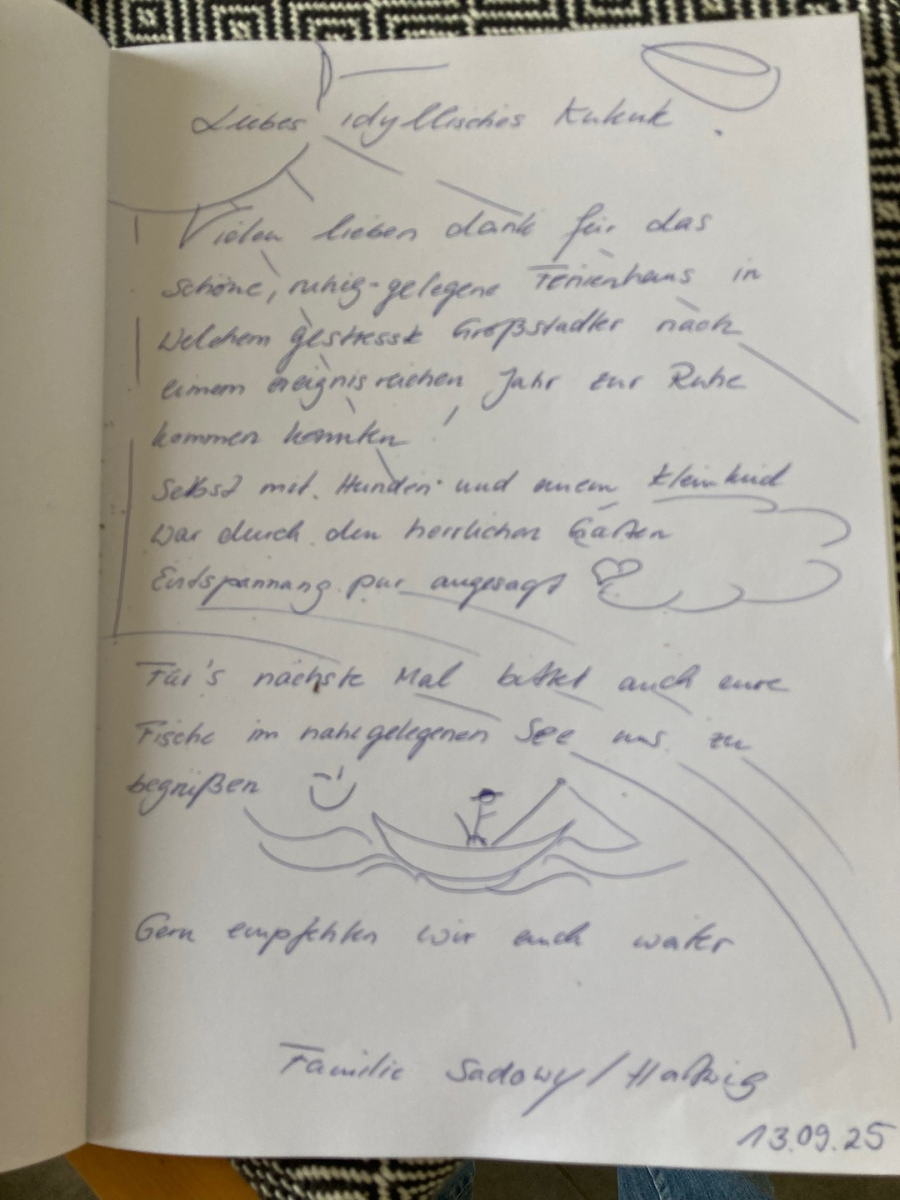 Liebes idyllisches Kukuk.
Vielen lieben dank für das
schöne, ruhig-gelegene Ferienhaus in
welchem gestresst Großstadler nach
einem ereignisreichen Jahr zur Ruhe
kommen konnten!
Selbst mit Hunden und einem Kleinkind
war durch den herrlichen Garten
Entspannung pur angesagt
Für's nächste Mal bittet auch eure
Fische im nahegelegenen See uns zu
begrüßen
Gern empfehlen wir euch weiter
Familie Sadowy / Hartwig
13.09.25